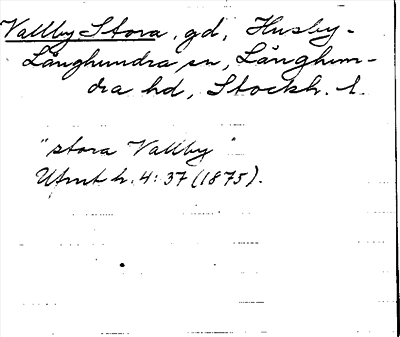 Vallby Stora, gd, Husby-
Långhundra sn, Långhun-
dra hd, Stockh. l.
"stora Vallby"
Utmt h. 4: 37 (1875).